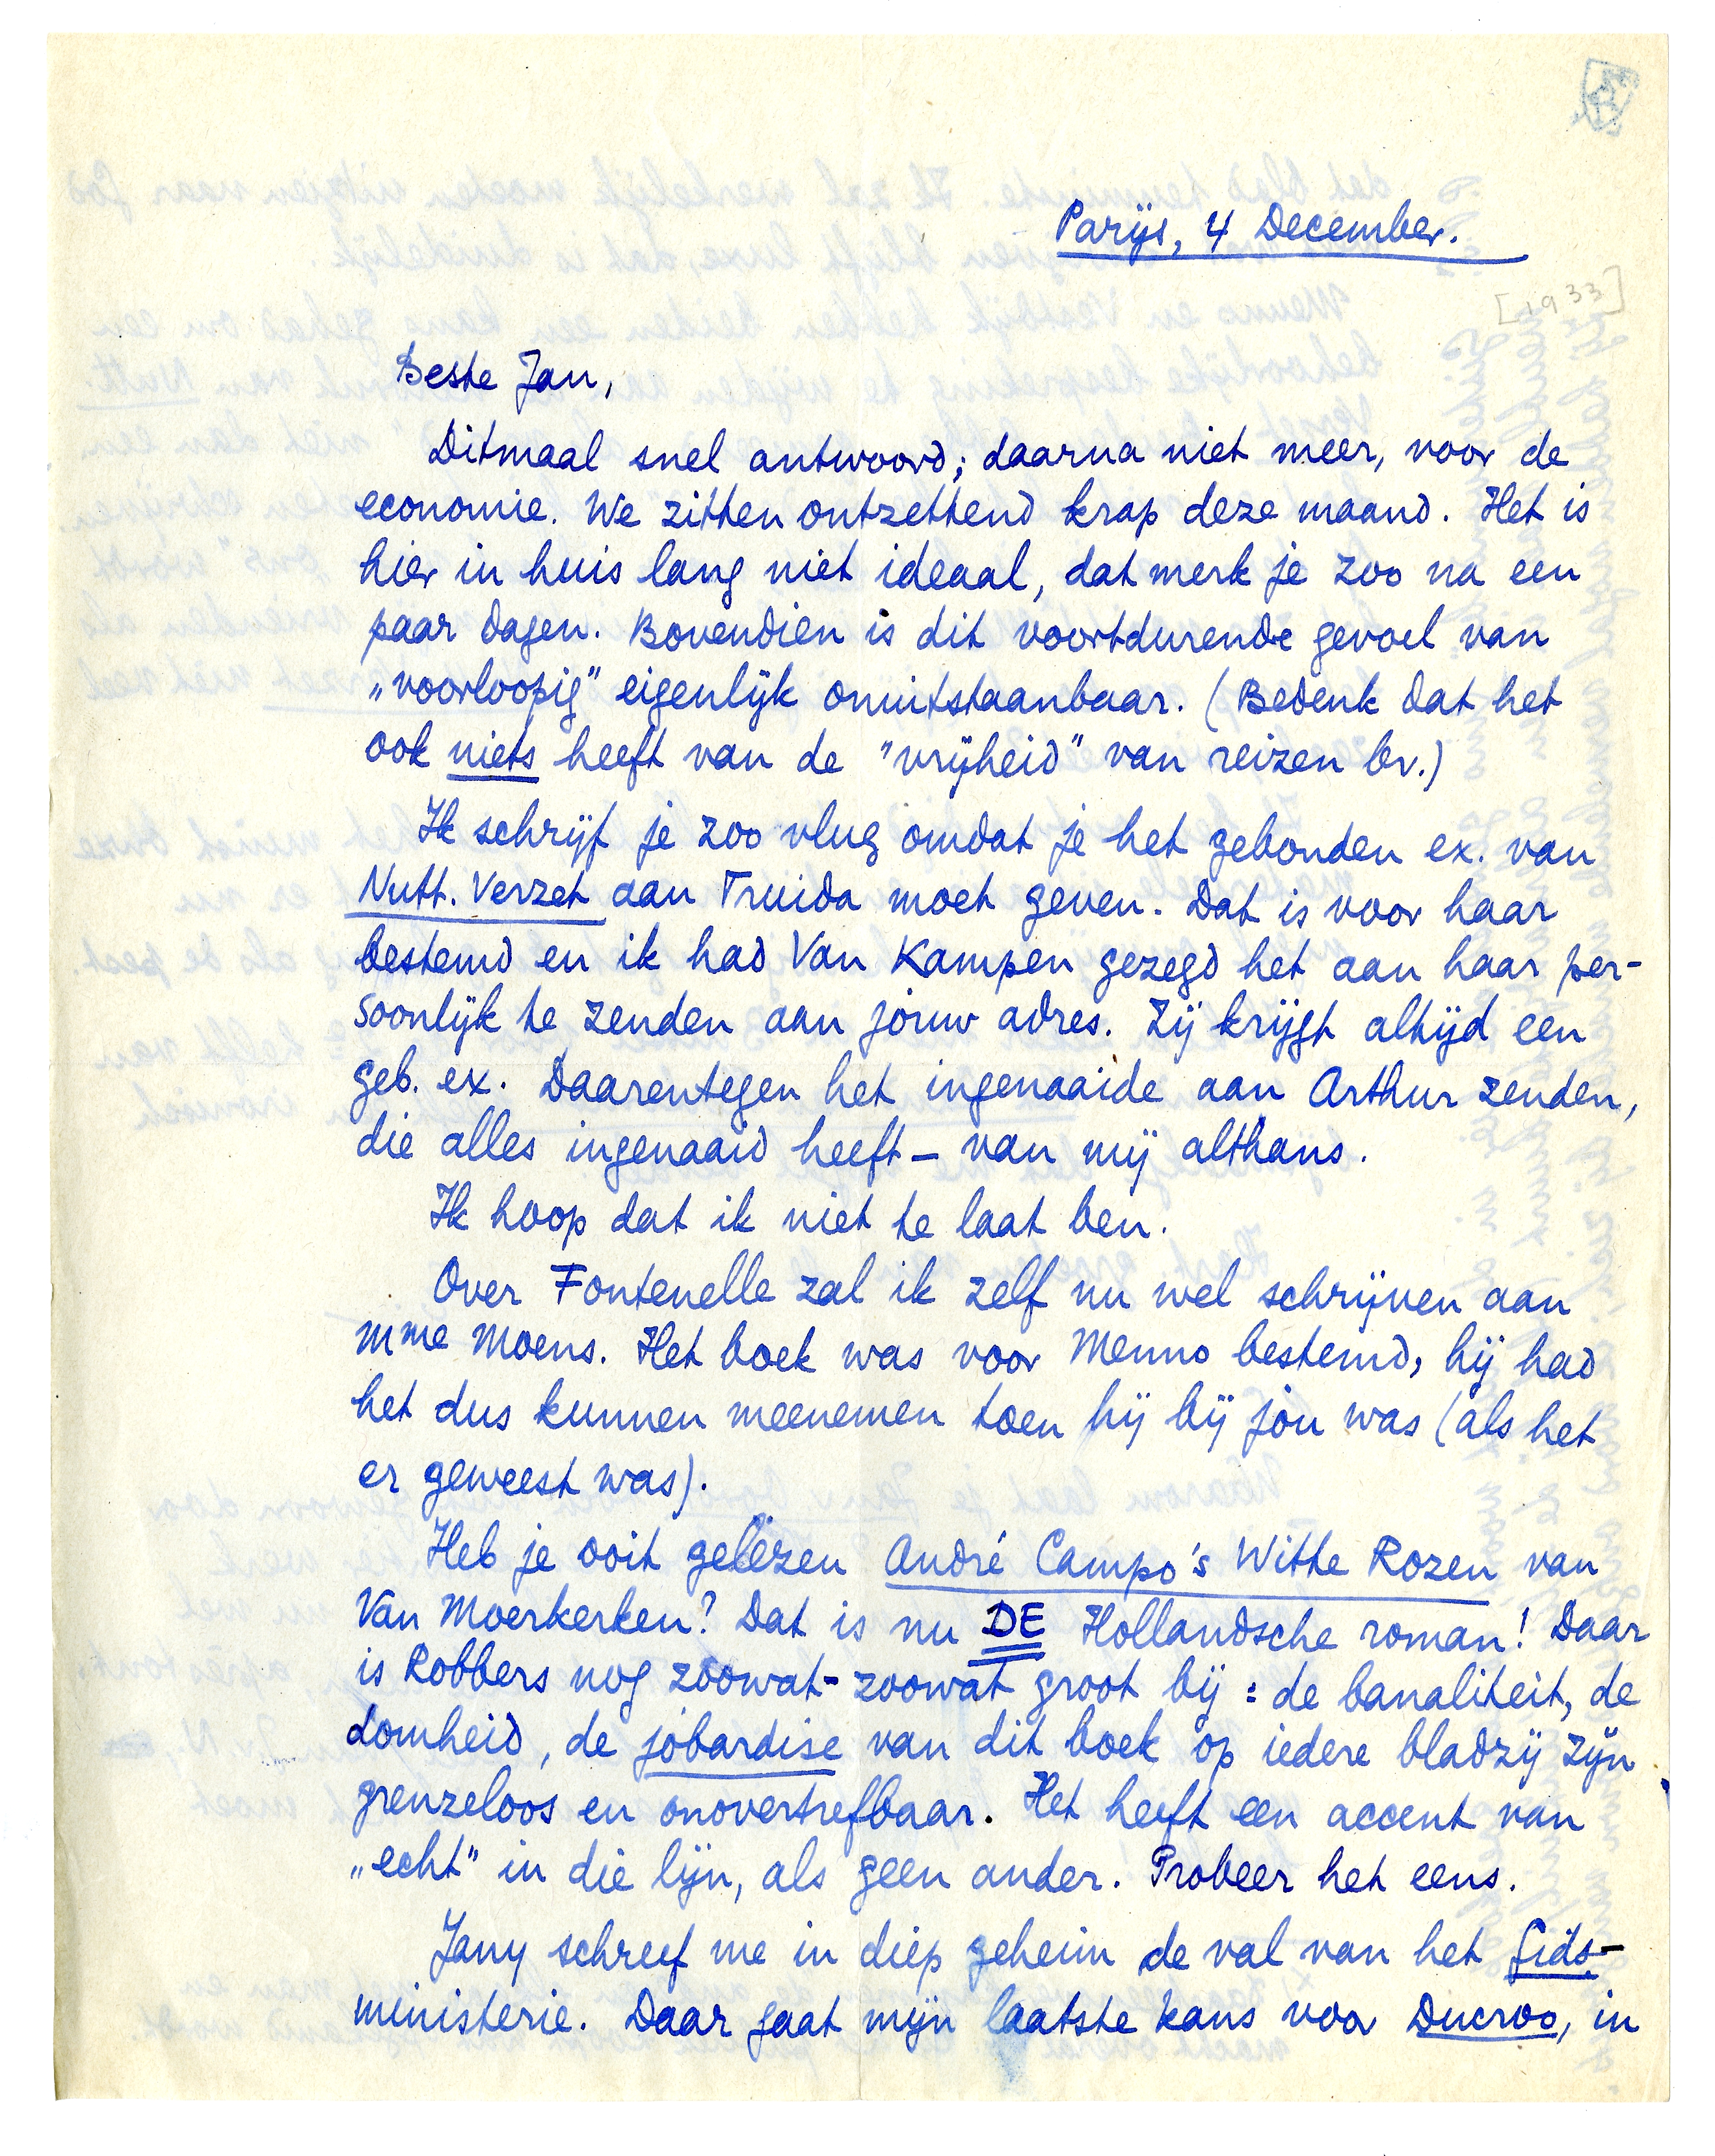 Parijs, 4 December.
[1933]
Beste Jan,
Ditmaal snel antwoord; daarna niet meer, voor de
economie. We zitten ontzettend krap deze maand. Het is
hier in huis lang niet ideaal, dat merk je zoo na een
paar dagen. Bovendien is dit voortdurende gevoel van
„voorloopig” eigenlijk onuitstaanbaar. (Bedenk dat het
ook niets heeft van de "vrijheid" van reizen bv.)
Ik schrijf je zoo vlug omdat je het gebonden ex. van
Nutt. Verzet aan Truida moet geven. Dat is voor haar
bestemd en ik had Van Kampen gezegd het aan haar per-
soonlijk te zenden aan jouw adres. Zij krijgt altijd een
geb. ex. Daarentegen het ingenaaide aan Arthur zenden,
die alles ingenaaid heeft – van mij althans.
Ik hoop dat ik niet te laat ben.
Over Fontenelle zal ik zelf nu wel schrijven aan
Mme Moens. Het boek was voor Menno bestemd, hij had
het dus kunnen meenemen toen hij bij jóu was (als het
er geweest was).
Heb je ooit gelezen André Campo's Witte Rozen van
Van Moerkerken? Dat is nu DE Hollandsche roman! Daar
is Robbers nog zoowat-zoowat groot bij: de banaliteit, de
domheid, de jobardise van dit boek op iedere bladzij zijn
grenzeloos en onovertrefbaar. Het heeft een accent van
„echt” in die lijn, als geen ander. Probeer het eens.
Jany schreef me in diep geheim de val van het Gids-
ministerie. Daar gaat mijn laatste kans voor Ducroo, in